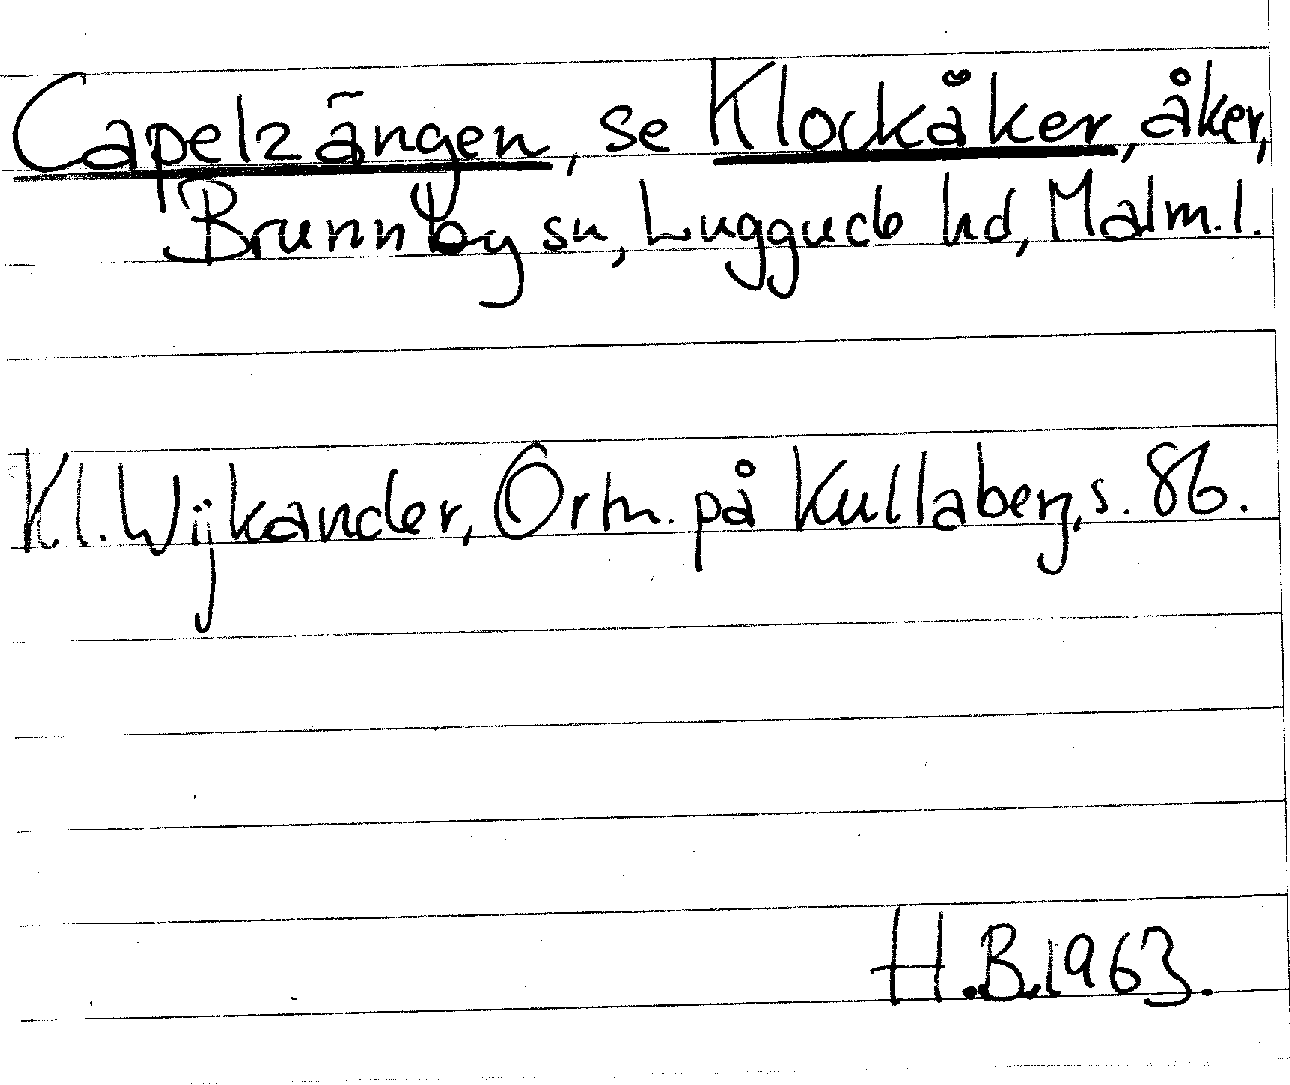 Capelzängen, se Klockåker, åker,
Brunnby sn, Luggude hd, Malm. l.
Kl. Wijkander, Ortn. på Kullaberg, s. 86.
H.B. 1963.